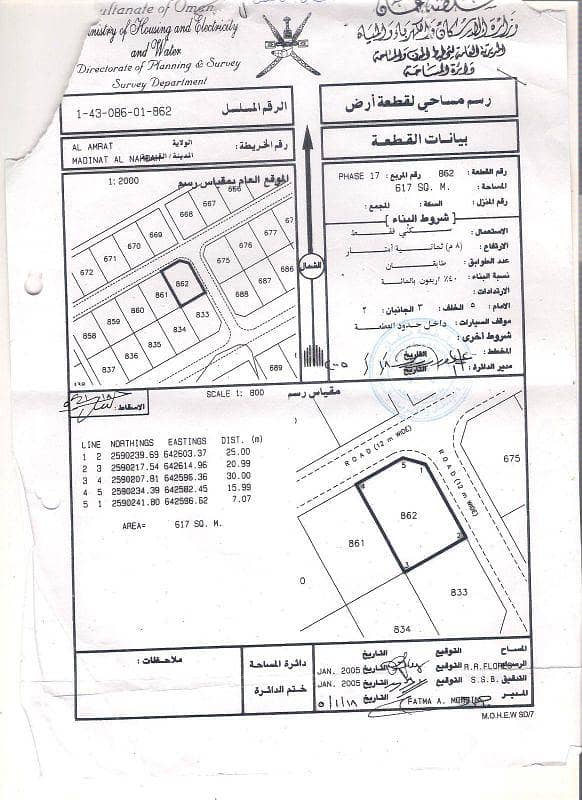 ultanate of Oman
سلطنة عمان
inistry of Housing and Electricity
and Water
وزارة الإسكان والكهرباء والمياه
Directorate of Planning & Survey
Survey Department
دائرة المساحة
1-43-086-01-862
الرقم المسلسل
رسم مساحي لقطعة أرض
AL AMRAT
الولاية
MADINAT AL NAHDAH
المدينة / القرية
رقم الخريطة:
بيانات القطعة
1: 2000
الموقع العام بمقياس رسم
رقم القطعة: 862
رقم المربع: PHASE 17
المساحة: 617 SQ. M.
رقم المنزل: السكة: المجمع:
[ شروط البناء ]
الاستعمال: سكني فقط
الارتفاع: (٨ م) ثمانية أمتار
عدد الطوابق: طابقان
نسبة البناء: ٤٠٪ اربعون بالمائة
الارتدادات:
الامام: ٥ الخلف: ٣ الجانبان: ٢
موقف السيارات: داخل حدود القطعة
شروط أخرى:
المخطط: التاريخ
مدير الدائرة: التاريخ
الشمال
666
667
668
669
670
671
672
675
676
677
686
687
688
689
862
861
860
859
858
833
834
835
836
الاسقاط:
SCALE 1: 800
مقياس رسم
LINE NORTHINGS EASTINGS DIST. (m)
1 2 2590239.69 642603.37 25.00
2 3 2590217.54 642614.96 20.99
3 4 2590207.81 642596.36 30.00
4 5 2590234.39 642582.45 15.99
5 1 2590241.80 642596.62 7.07
AREA= 617 SQ. M.
ROAD (12 m WIDE)
ROAD (12 m WIDE)
675
5
1
4
862
2
861
3
0
833
834
ملاحظات:
دائرة المساحة
ختم الدائرة
المساح التوقيع التاريخ
الرسام R.R.FLORES التوقيع التاريخ JAN. 2005
التدقيق S.S.B. التوقيع التاريخ JAN. 2005
المدير FATMA A. التوقيع التاريخ ٥/١/١٨
M.O.H.E.W SD/7